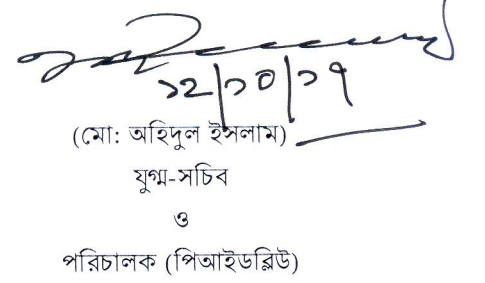 ১২/১০/১৭
(মো: অহিদুল ইসলাম)
যুগ্ম-সচিব
ও
পরিচালক (পিআইডব্লিউ)